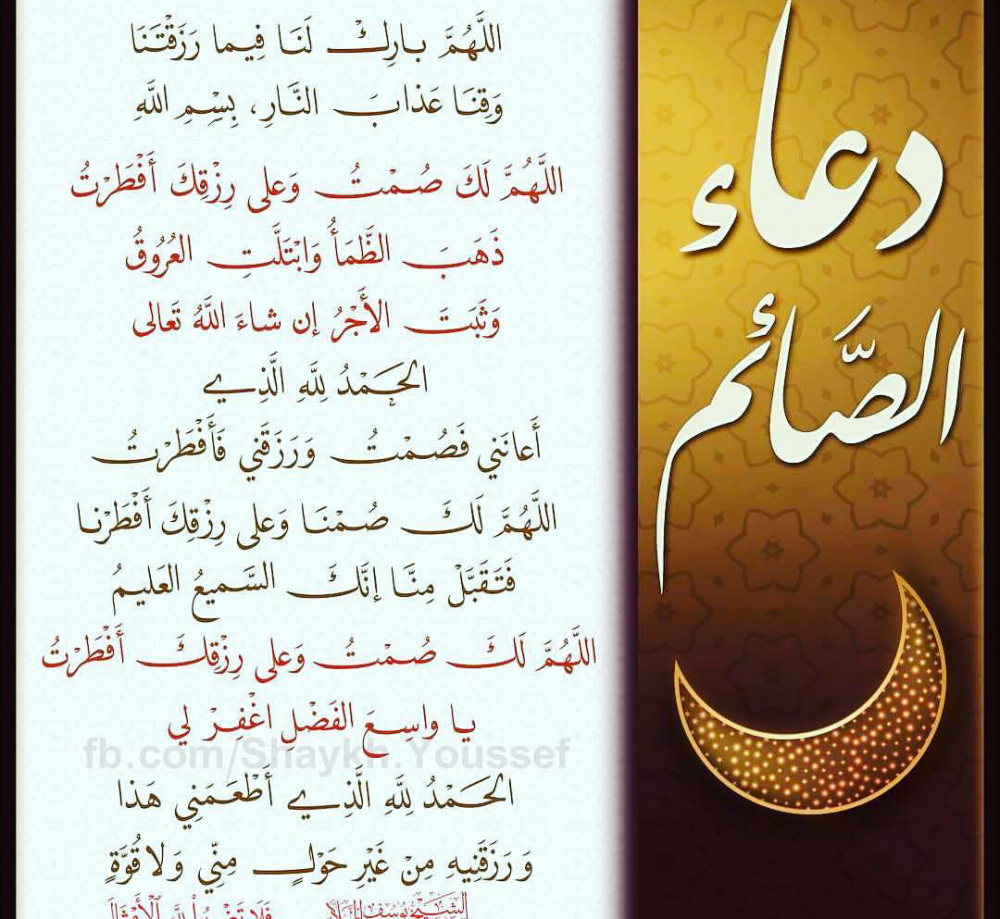 دعاء
الصَّائم
اللَّهُمَّ بارِكْ لَنَا فِيما رَزَقْتَنَا
وَقِنَا عَذابَ النَّارِ، بِسْمِ اللَّهِ
اللَّهُمَّ لَكَ صُمْتُ وَعلى رِزْقِكَ أَفْطَرْتُ
ذَهَبَ الظَّمَأُ وَابْتَلَّتِ العُرُوقُ
وَثَبَتَ الأَجْرُ إن شاءَ اللَّهُ تَعالى
الحَمْدُ لِلَّهِ الَّذِي
أَعانَني فَصُمْتُ وَرَزَقَني فَأَفْطَرْتُ
اللَّهُمَّ لَكَ صُمْنَا وَعلى رِزْقِكَ أَفْطَرْنا
فَتَقَبَّلْ مِنَّا إنَّكَ السَّمِيعُ العَلِيمُ
اللَّهُمَّ لَكَ صُمْتُ وَعلى رِزْقِكَ أَفْطَرْتُ
يا واسِعَ الفَضْلِ اغْفِرْ لي
fb.com/Shaykh.Youssef
الحَمْدُ لِلَّهِ الَّذِي أَطْعَمَنِي هَذا
وَرَزَقَنِيهِ مِنْ غَيْرِ حَوْلٍ مِنِّي وَلا قُوَّةٍ